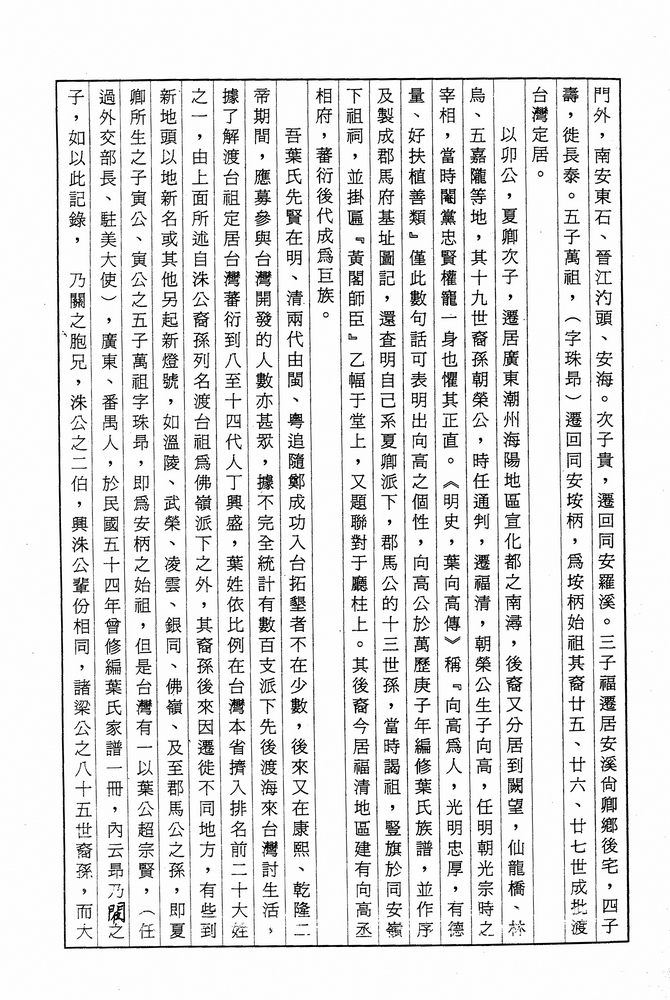 門外，南安東石、晉江汋頭、安海。次子貴，遷回同安羅溪。三子福遷居安溪尙卿鄉後宅，四子
壽，徙長泰。五子萬祖，（字珠昂）遷回同安垵柄，爲垵柄始祖其裔廿五、廿六、廿七世成批渡
台灣定居。
以卯公，夏卿次子，遷居廣東潮州海陽地區宣化都之南潯，後裔又分居到闕望，仙龍橋、林
烏、五嘉隴等地，其十九世裔孫朝榮公，時任通判，遷福清，朝榮公生子向高，任明朝光宗時之
宰相，當時閹黨忠賢權寵一身也懼其正直。《明史，葉向高傳》稱『向高爲人，光明忠厚，有德
量、好扶植善類』僅此數句話可表明出向高之個性，向高公於萬歷庚子年編修葉氏族譜，並作序
及製成郡馬府基址圖記，還查明自己系夏卿派下，郡馬公的十三世孫，當時謁祖，豎旗於同安嶺
下祖祠，並掛匾『黃閣師臣』乙幅于堂上，又題聯對于廳柱上。其後裔今居福清地區建有向高丞
相府，蕃衍後代成爲巨族。
吾葉氏先賢在明、清兩代由閩、粵追隨鄭成功入台拓墾者不在少數，後來又在康熙、乾隆二
帝期間，應募參與台灣開發的人數亦甚眾，據不完全統計有數百支派下先後渡海來台灣討生活，
據了解渡台祖定居台灣蕃衍到八至十四代人丁興盛，葉姓依比例在台灣本省擠入排名前二十大姓
之一，由上面所述自洙公裔孫列名渡台祖爲佛嶺派下之外，其裔孫後來因遷徙不同地方，有些到
新地頭以地新名或其他另起新燈號，如溫陵、武榮、凌雲、銀同、佛嶺、及至郡馬公之孫，即夏
卿所生之子寅公、寅公之五子萬祖字珠昂，即爲安柄之始祖，但是台灣有一以葉公超宗賢，（任
過外交部長、駐美大使），廣東、番禺人，於民國五十四年曾修編葉氏家譜一冊，內云昂乃閣之
子，如以此記錄，乃關之胞兄，洙公之二伯，興洙公輩份相同，諸梁公之八十五世裔孫，而大